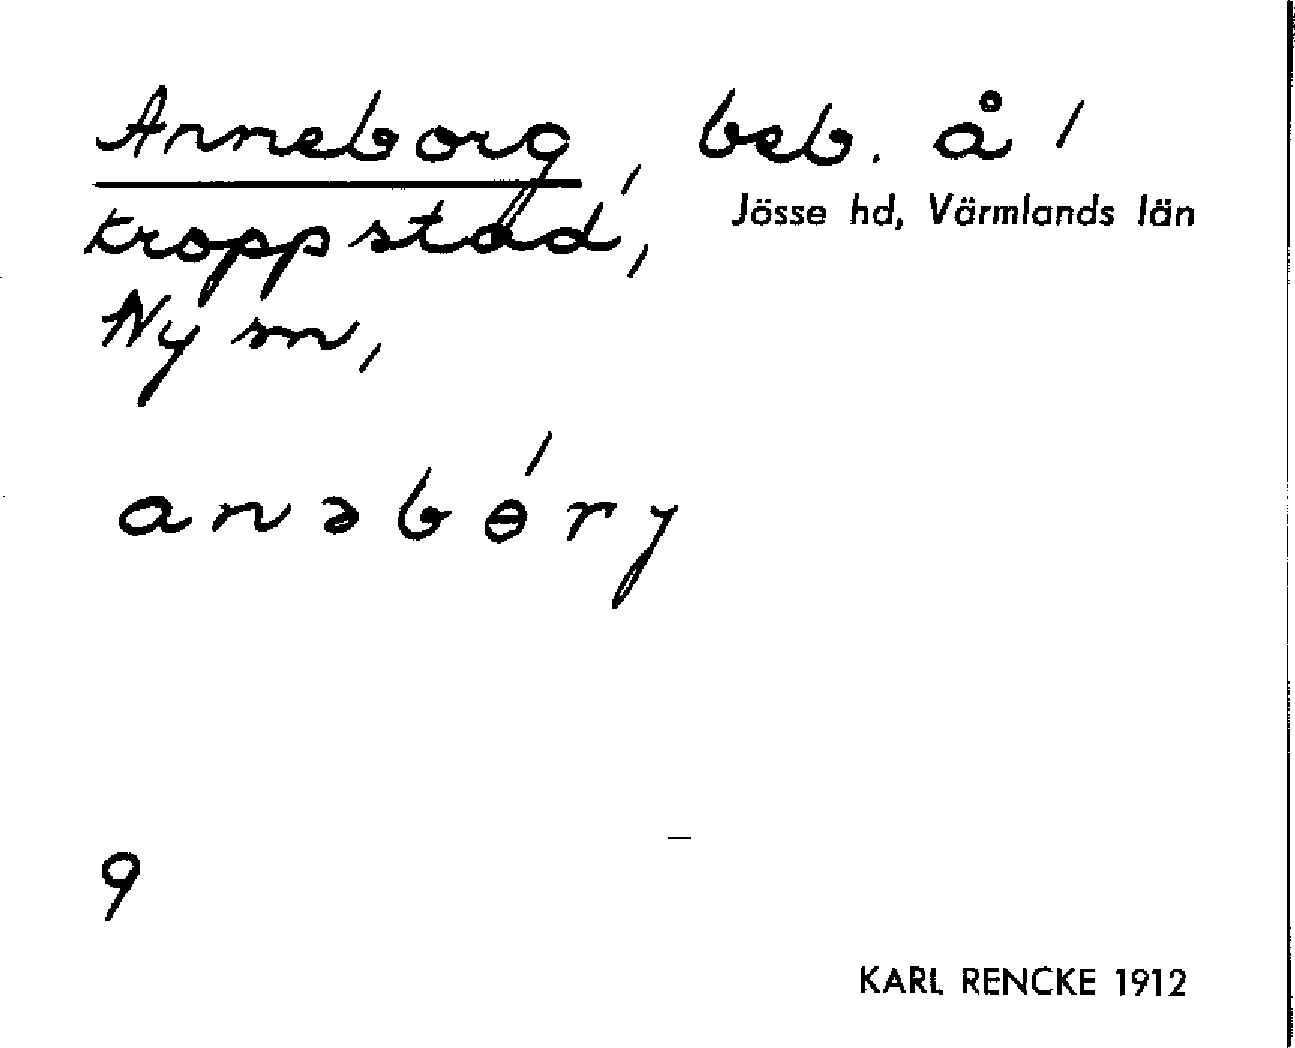 Anneborg, beb. å /
Jösse hd, Värmlands län
kroppstad,
Ny sn,
anəbɵ́ry
9
KARL RENCKE 1912